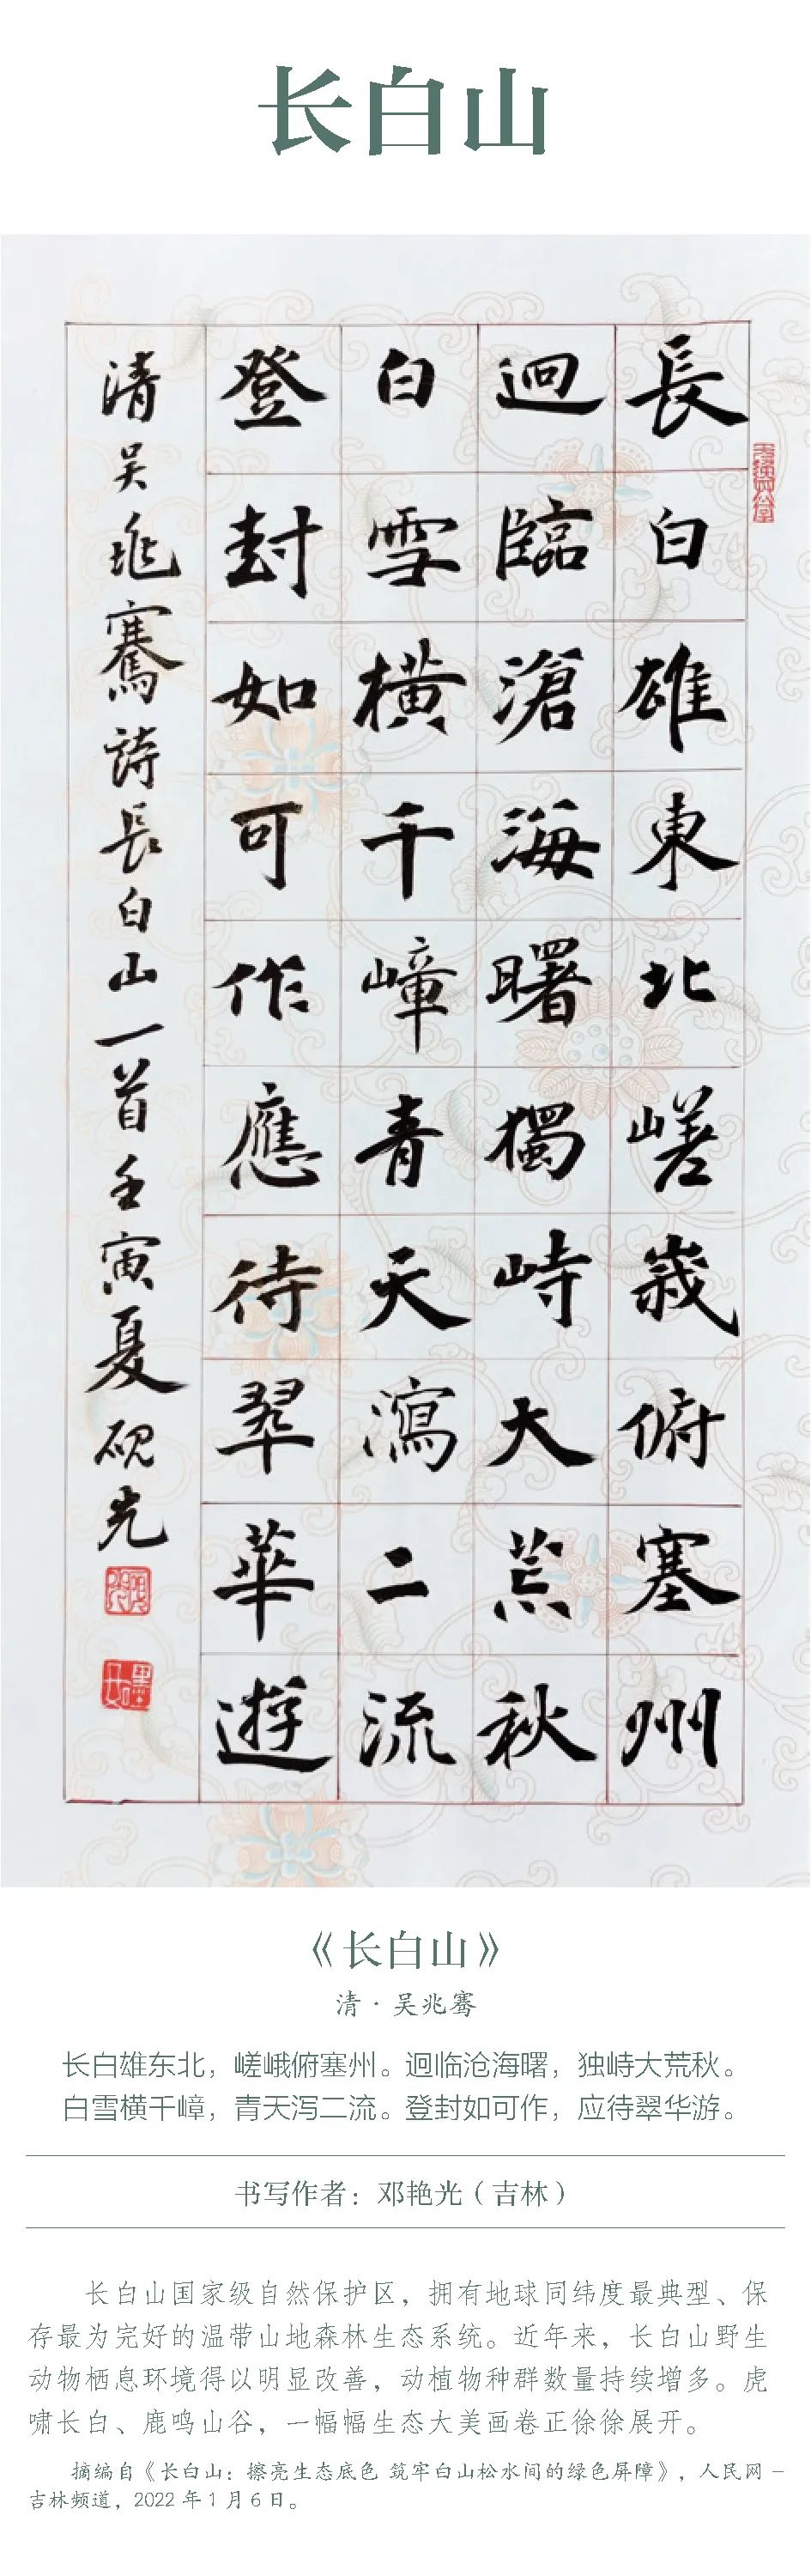 长白山
長白雄東北嵯峩俯塞州
迥臨滄海曙獨峙大荒秋
白雪橫千嶂青天瀉二流
登封如可作應待翠華遊
清吴兆騫詩長白山一首壬寅夏砚光
《长白山》
清·吴兆骞
长白雄东北，嵯峨俯塞州。迥临沧海曙，独峙大荒秋。
白雪横千嶂，青天泻二流。登封如可作，应待翠华游。
书写作者：邓艳光（吉林）
长白山国家级自然保护区，拥有地球同纬度最典型、保
存最为完好的温带山地森林生态系统。近年来，长白山野生
动物栖息环境得以明显改善，动植物种群数量持续增多。虎
啸长白、鹿鸣山谷，一幅幅生态大美画卷正徐徐展开。
摘编自《长白山：擦亮生态底色 筑牢白山松水间的绿色屏障》，人民网－
吉林频道，2022 年 1 月 6 日。